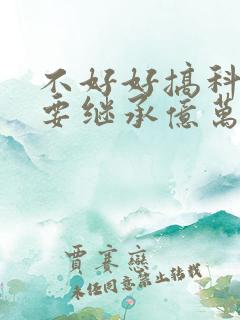 不好好搞科
要继承億萬
賈賽戀
未经同意禁止转载